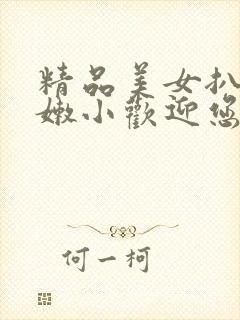 精品美女扒
嫩小歡迎您
何一柯